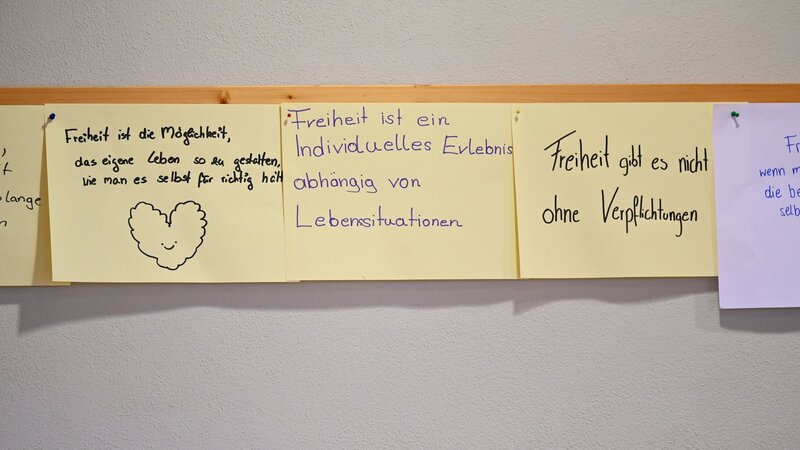 t
olange
n
Freiheit ist die Möglichkeit,
das eigene Leben so zu gestalten,
wie man es selbst für richtig hält
Freiheit ist ein
Individuelles Erlebnis
abhängig von
Lebenssituationen
Freiheit gibt es nicht
ohne Verpflichtungen
Fr
wenn m
die be
selb